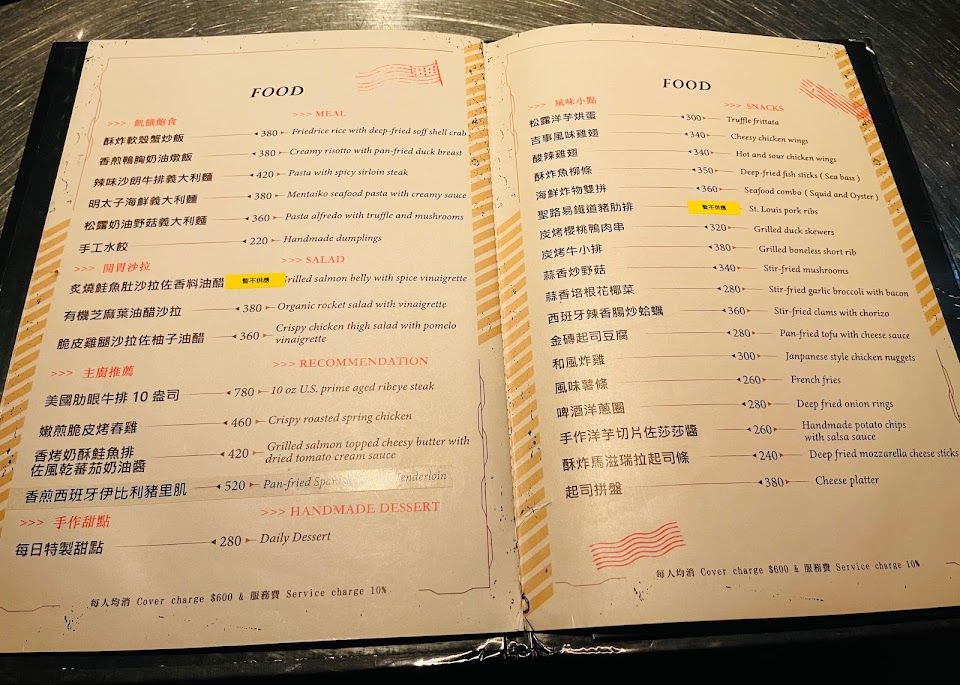 FOOD
>>> 飢餓飽食 >>> MEAL
酥炸軟殼蟹炒飯 380 Friedrice rice with deep-fried soff shell crab
香煎鴨胸奶油燉飯 380 Creamy risotto with pan-fried duck breast
辣味沙朗牛排義大利麵 420 Pasta with spicy sirloin steak
明太子海鮮義大利麵 380 Mentaiko seafood pasta with creamy sauce
松露奶油野菇義大利麵 360 Pasta alfredo with truffle and mushrooms
手工水餃 220 Handmade dumplings
>>> 開胃沙拉 >>> SALAD
炙燒鮭魚肚沙拉佐香料油醋 暫不供應 Grilled salmon belly with spice vinaigrette
有機芝麻葉油醋沙拉 380 Organic rocket salad with vinaigrette
脆皮雞腿沙拉佐柚子油醋 360 Crispy chicken thigh salad with pomelo
vinaigrette
>>> 主廚推薦 >>> RECOMMENDATION
美國肋眼牛排 10 盎司 780 10 oz U.S. prime aged ribeye steak
嫩煎脆皮烤春雞 460 Crispy roasted spring chicken
香烤奶酥鮭魚排 420 Grilled salmon topped cheesy butter with
佐風乾蕃茄奶油醬 dried tomato cream sauce
香煎西班牙伊比利豬里肌 520 Pan-fried
>>> 手作甜點 >>> HANDMADE DESSERT
每日特製甜點 280 Daily Dessert
每人均消 Cover charge $600 & 服務費 Service charge 10%
FOOD
>>> 風味小點 >>> SNACKS
松露洋芋烘蛋 300 Truffle frittata
吉事風味雞翅 340 Cheesy chicken wings
酸辣雞翅 340 Hot and sour chicken wings
酥炸魚柳條 350 Deep-fried fish sticks ( Sea bass )
海鮮炸物雙拼 360 Seafood combo ( Squid and Oyster )
聖路易鐵道豬肋排 暫不供應 St. Louis pork ribs
炭烤櫻桃鴨肉串 320 Grilled duck skewers
炭烤牛小排 380 Grilled boneless short rib
蒜香炒野菇 340 Stir-fried mushrooms
蒜香培根花椰菜 280 Stir-fried garlic broccoli with bacon
西班牙辣香腸炒蛤蠣 360 Stir-fried clams with chorizo
金磚起司豆腐 280 Pan-fried tofu with cheese sauce
和風炸雞 300 Janpanese style chicken nuggets
風味薯條 260 French fries
啤酒洋蔥圈 280 Deep fried onion rings
手作洋芋切片佐莎莎醬 260 Handmade potato chips
with salsa sauce
酥炸馬滋瑞拉起司條 240 Deep fried mozzarella cheese sticks
起司拼盤 380 Cheese platter
每人均消 Cover charge $600 & 服務費 Service charge 10%